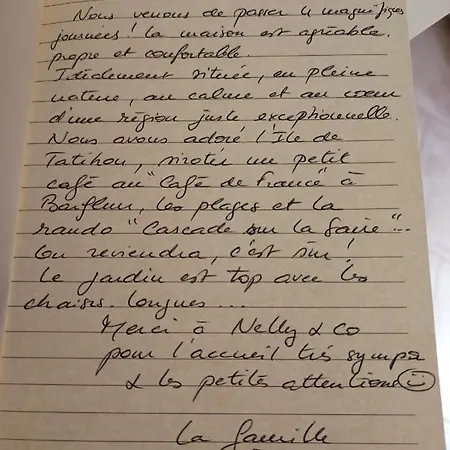 Nous venons de passer 4 magnifiques
journées ! La maison est agréable,
propre et confortable.
Idéalement située, en pleine
nature, au calme et au coeur
d'une région juste exceptionnelle.
Nous avons adoré l'Ile de
Tatihou, siroter un petit
café au "Café de France" à
Barfleur, les plages et la
rando "Cascade sur la Saire"...
On reviendra, c'est sûr !
Le jardin est top avec les
chaises longues...
Merci à Nelly & co
pour l'accueil très sympa
& les petites attentions
La famille